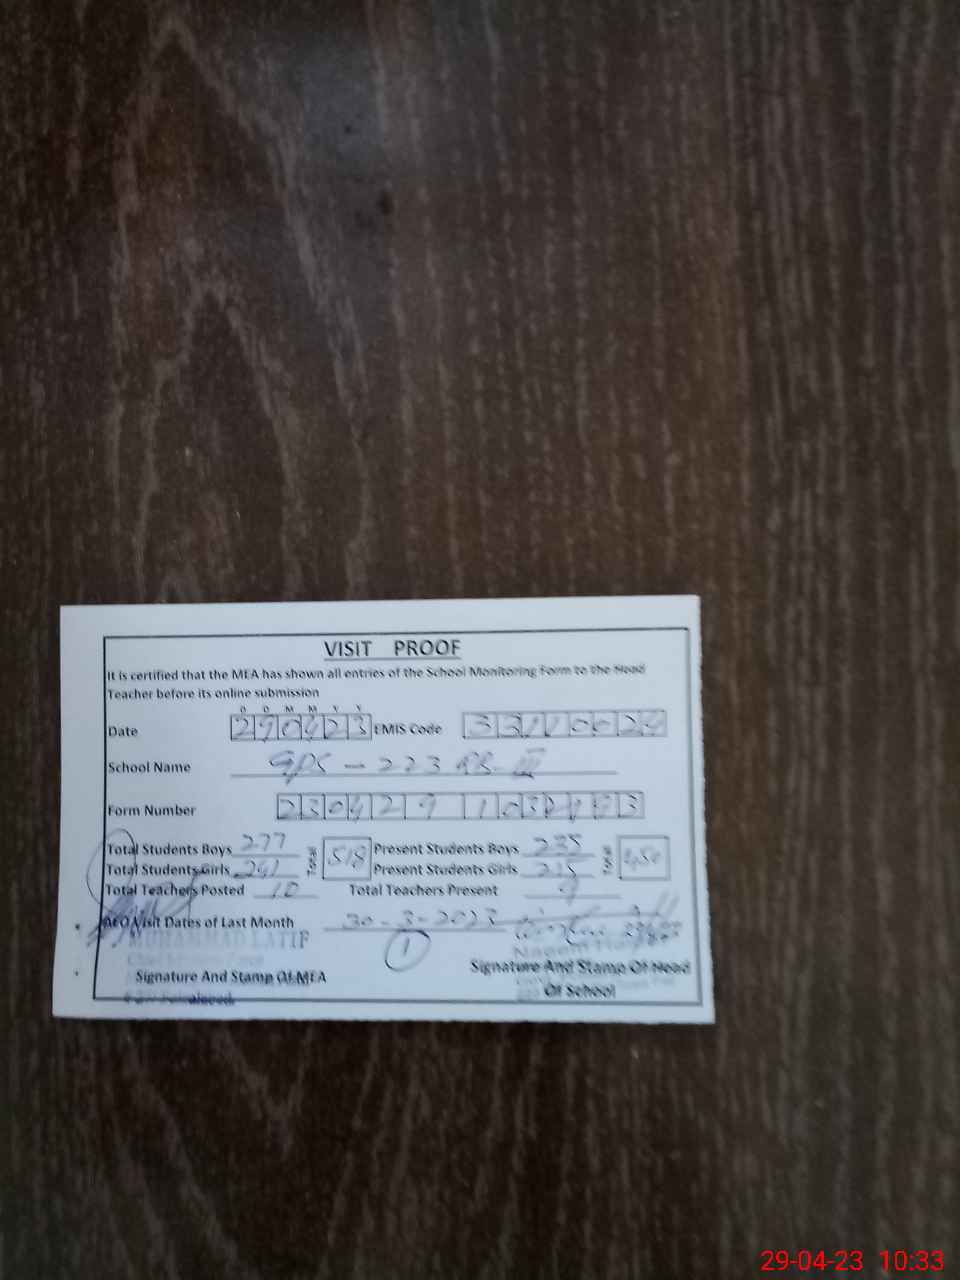 VISIT PROOF
It is certified that the MEA has shown all entries of the School Monitoring Form to the Head
Teacher before its online submission
D D M M Y Y
Date 290423 EMIS Code 33110024
School Name GPS - 223 RB-III
Form Number 2304291032
Total Students Boys 277 Total 518 Present Students Boys 235 Total 450
Total Students Girls 241 Present Students Girls 215
Total Teachers Posted 10 Total Teachers Present 9
AEO Visit Dates of Last Month 30-3-2023
1
MUHAMMAD LATIF
Signature And Stamp Of MEA Signature And Stamp Of Head
Of School
29-04-23 10:33